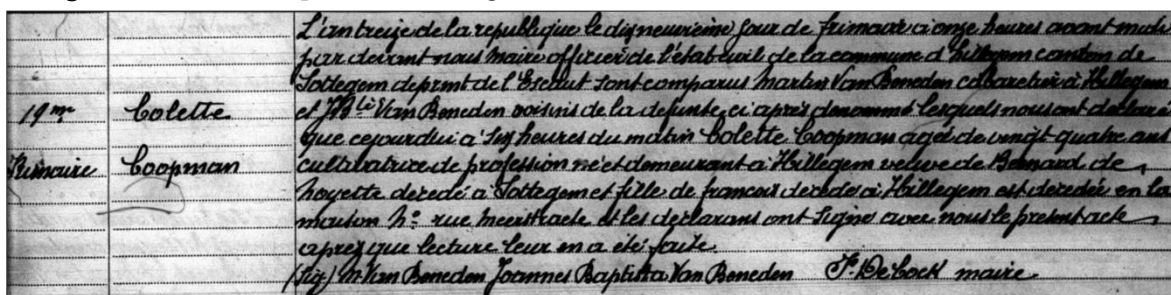 L'an treize de la republique le disneuvième jour de frimaire a onze heures avant midi
par devant nous maire officier de l'état civil de la commune d'hillegem canton de
Sottegem depmt de l'Escaut sont comparus Martin Van Beneden cabaretier à Hillegem
19me Colette et J Bte Van Beneden voisins de la defunte ci après denommé lesquels nous ont declaré
que cejourdui a six heures du matin Colette Coopman agée de vingt quatre ans
frimaire Coopman cultivatrice de profession né et demeurant à Hillegem veuve de Bernard de
noyette decedé à Sottegem et fille de francois decede a Hillegem est decedée en la
maison No rue et les declarans ont signé avec nous le present acte
apres que lecture leur en a été faite.
(Sig) M. Van Beneden Joannes Baptista Van Beneden F. De Cock maire.